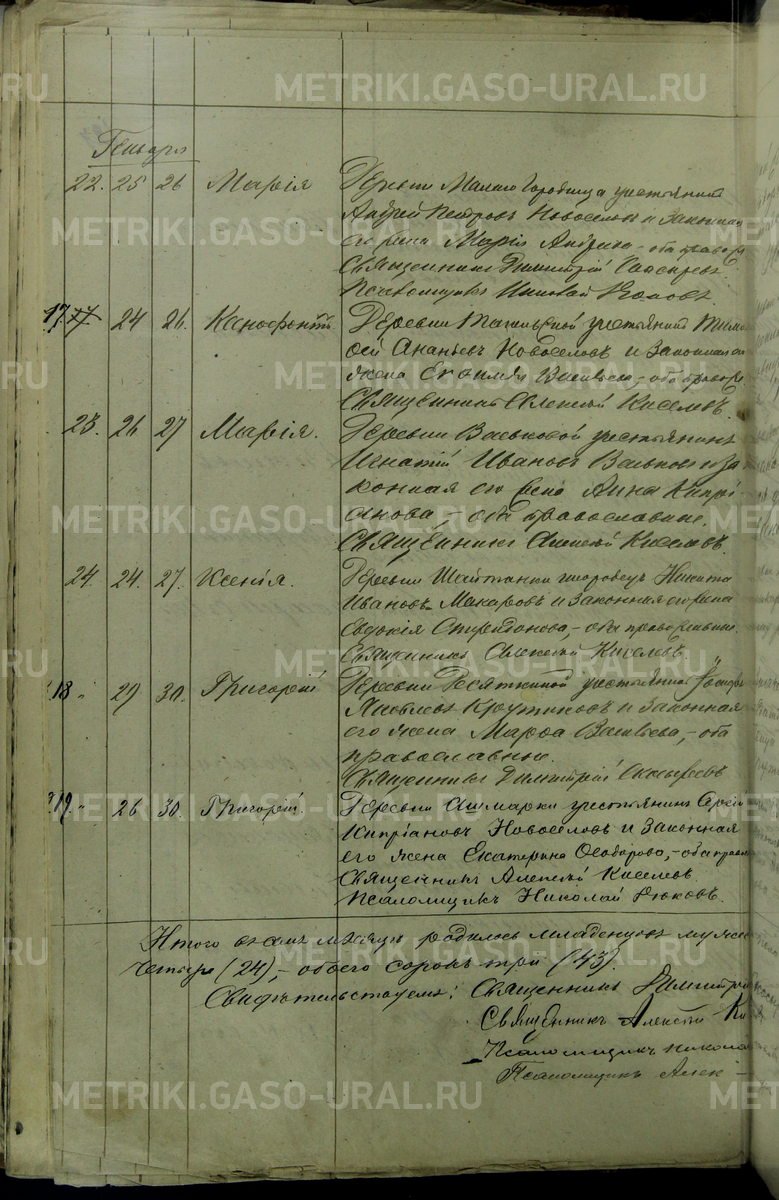 Генваря
22. 25 26 Марія Деревни Малаго Городища крестьянинъ
Андрей Петровъ Новоселовъ и законная
его жена Марія Андреева – оба правосл.
Священникъ Димитрій
Псаломщикъ Николай Дюковъ.
17. 17 24 26. Ксенофонтъ Деревни Тагильской крестьянинъ Тимо
фей Ананьевъ Новоселовъ и законная его
жена Евфимія Васильева, – оба правосл.
Священникъ Алексей Киселевъ.
23. 26 27 Марія. Деревни Васьковой крестьянинъ
Игнатій Ивановъ Васьковъ и за
конная его жена Анна Кипрі
анова, – оба православные.
Священникъ Алексей Киселевъ.
24. 24. 27. Ксенія. Деревни Шайтанки инородецъ Никита
Ивановъ Макаровъ и законная его жена
Евдокія Спиридонова, – оба православные.
Священникъ Алексей Киселевъ.
18 " 29 30. Григорій Деревни Десяткиной крестьянинъ
Яковлевъ Крутиковъ и законная
его жена Марфа Васильева, – оба
православные.
Священникъ Димитрій
19. " 26 30. Григорій. Деревни Ашмарки крестьянинъ Сергій
Кипріановъ Новоселовъ и законная
его жена Екатерина Феодорова, – оба правосл
Священникъ Алексей Киселевъ.
Псаломщикъ Николай Дюковъ.
Итого въ семъ месяце родилось младенцевъ муже
четыре (24), – обоего сорокъ три (43).
Свидетельствуемъ: Священникъ Димитрій
Священникъ Алексей Ки
Псаломщикъ Никола
Псаломщикъ Алек
METRIKI.GASO-URAL.RU